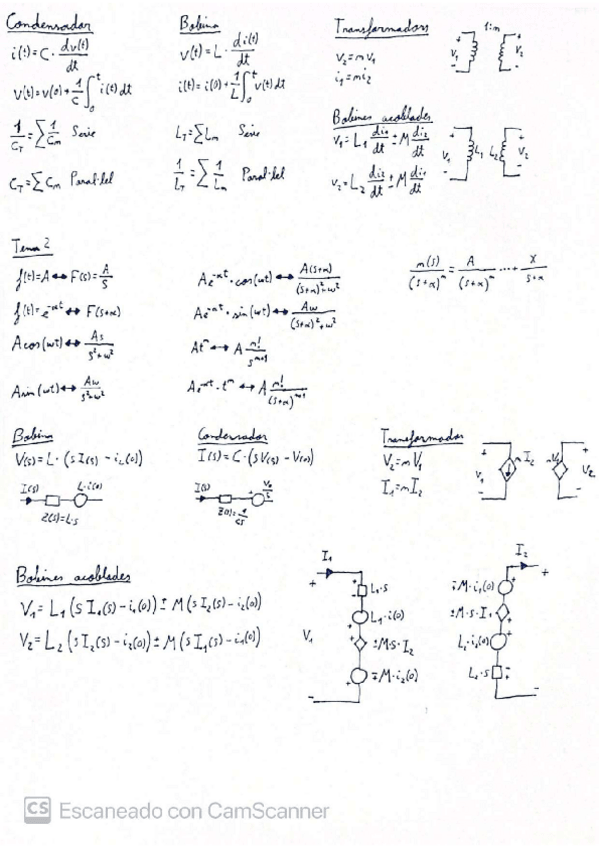 Condensador
i(t)=C·dv(t)/dt
v(t)=v(0)+1/C ∫₀ᵗ i(t)dt
1/C_T=∑1/Cm Serie
C_T=∑Cm Paral·lel
Bobina
v(t)=L·di(t)/dt
i(t)=i(0)+1/L ∫₀ᵗ v(t)dt
L_T=∑Lm Serie
1/L_T=∑1/Lm Paral·lel
Transformadors
v₂=m v₁
i₁=m i₂
1:m
V₁
V₂
Bobines acoblades
v₁=L₁ di₁/dt ± M di₂/dt
v₂=L₂ di₂/dt ± M di₁/dt
+ +
V₁ L₁ L₂ V₂
- -
Tema 2
f(t)=A ↔ F(s)=A/s
f(t)=e^-αt ↔ F(s+α)
A cos(wt) ↔ As/s²+w²
A sin(wt) ↔ Aw/s²+w²
Ae^-αt·cos(wt) ↔ A(s+α)/(s+α)²+w²
Ae^-αt·sin(wt) ↔ Aw/(s+α)²+w²
At^n ↔ A n!/s^n+1
Ae^-αt·t^n ↔ A n!/(s+α)^n+1
n(s)/(s+α)^n = A/(s+α)^n ...+ X/s+α
Bobina
V(s)=L·(sI(s)-i_L(0))
I(s) L·i(0)
Z(s)=L·s
Condensador
I(s)=C·(sV(s)-V(0))
I(s) V₀/s
Z(s)=1/Cs
Transformador
V₂=mV₁
I₁=mI₂
+ +
V₁ mI₂ V₂
- -
Bobines acoblades
V₁=L₁(sI₁(s)-i₁(0)) ± M(sI₂(s)-i₂(0))
V₂=L₂(sI₂(s)-i₂(0)) ± M(sI₁(s)-i₁(0))
I₁
+
L₁·s
L₁·i(0)
V₁
±M·s·I₂
∓M·i₂(0)
-
I₂
+
∓M·i₁(0)
±M·s·I₁
L₂·i₂(0)
L₂·s
-
CS Escaneado con CamScanner